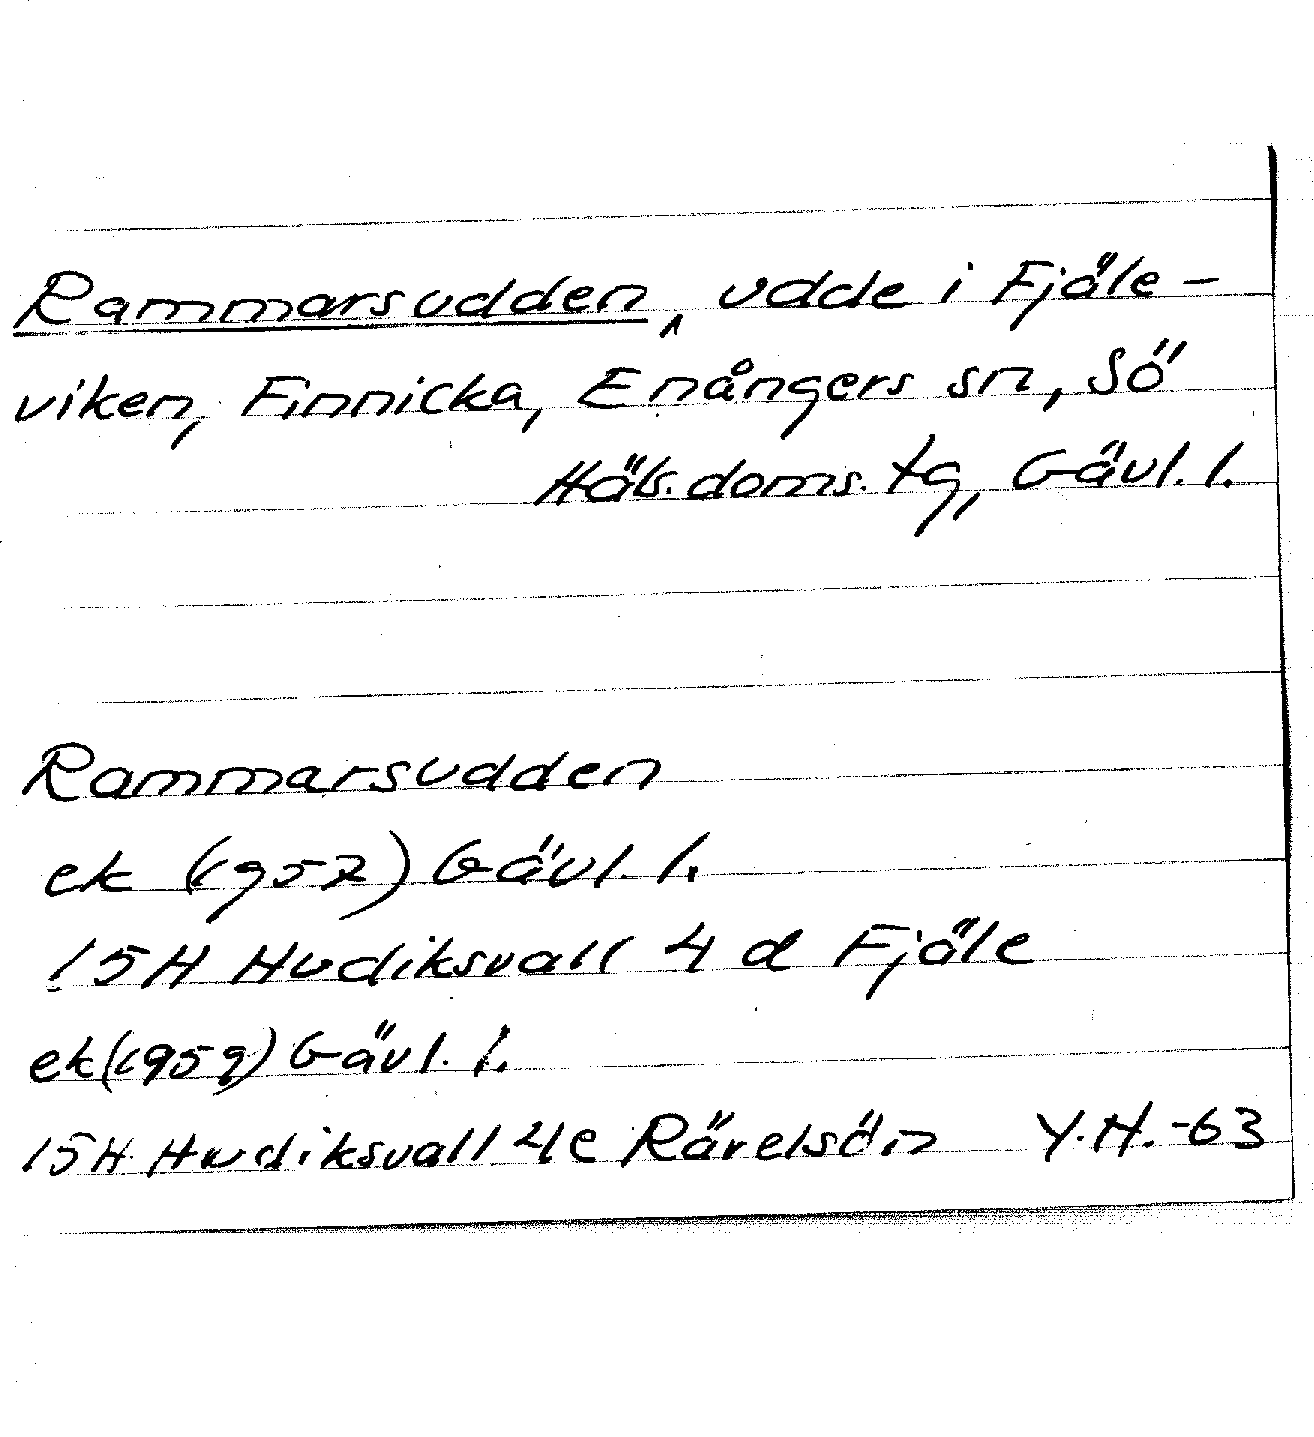 Rammarsudden, udde i Fjäle-
viken, Finnicka, Enångers sn, Sö
Häls. doms. tg, Gävl. l.
Rammarsudden
ek (1957) Gävl. l.
15H Hudiksvall 4 d Fjäle
ek (1959) Gävl. l.
15H Hudiksvall 4e Rävelsön Y.H. -63